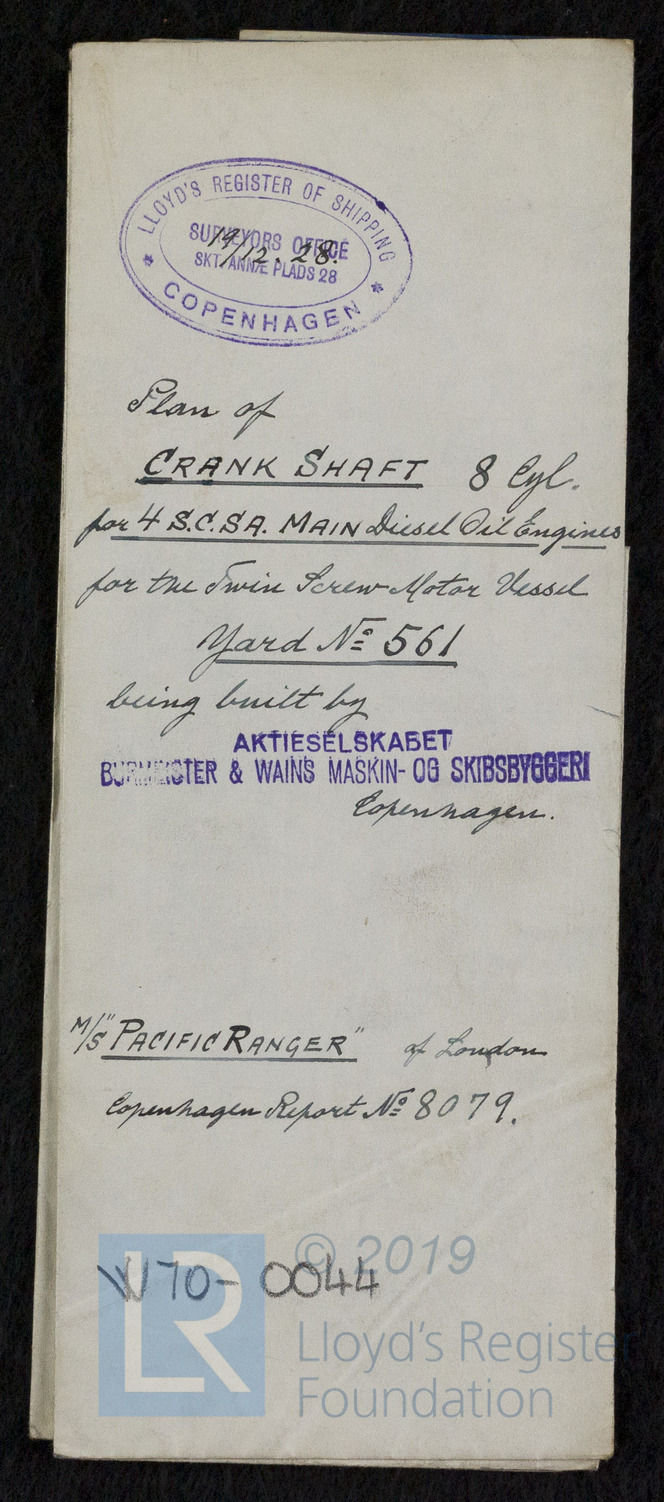 LLOYD'S REGISTER OF SHIPPING
SURVEYORS OFFICE
19/12.28.
SKT. ANNÆ PLADS 28
* COPENHAGEN *
Plan of
CRANK SHAFT 8 Cyl.
for 4 S.C.SA. MAIN Diesel Oil Engines
for the Twin Screw Motor Vessel
Yard Nº 561
being built by
AKTIESELSKABET
BURMEISTER & WAINS MASKIN- OG SKIBSBYGGERI
Copenhagen.
M/S "PACIFIC RANGER" of London
Copenhagen Report Nº 8079.
W70-0044
LR
© 2019
Lloyd's Register
Foundation